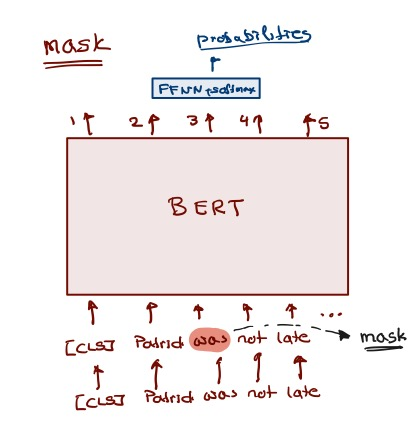 mask
probabilities
FFNN + softmax
1 2 3 4 5
BERT
...
[CLS] Patrid was not late
mask
[CLS] Patrid was not late